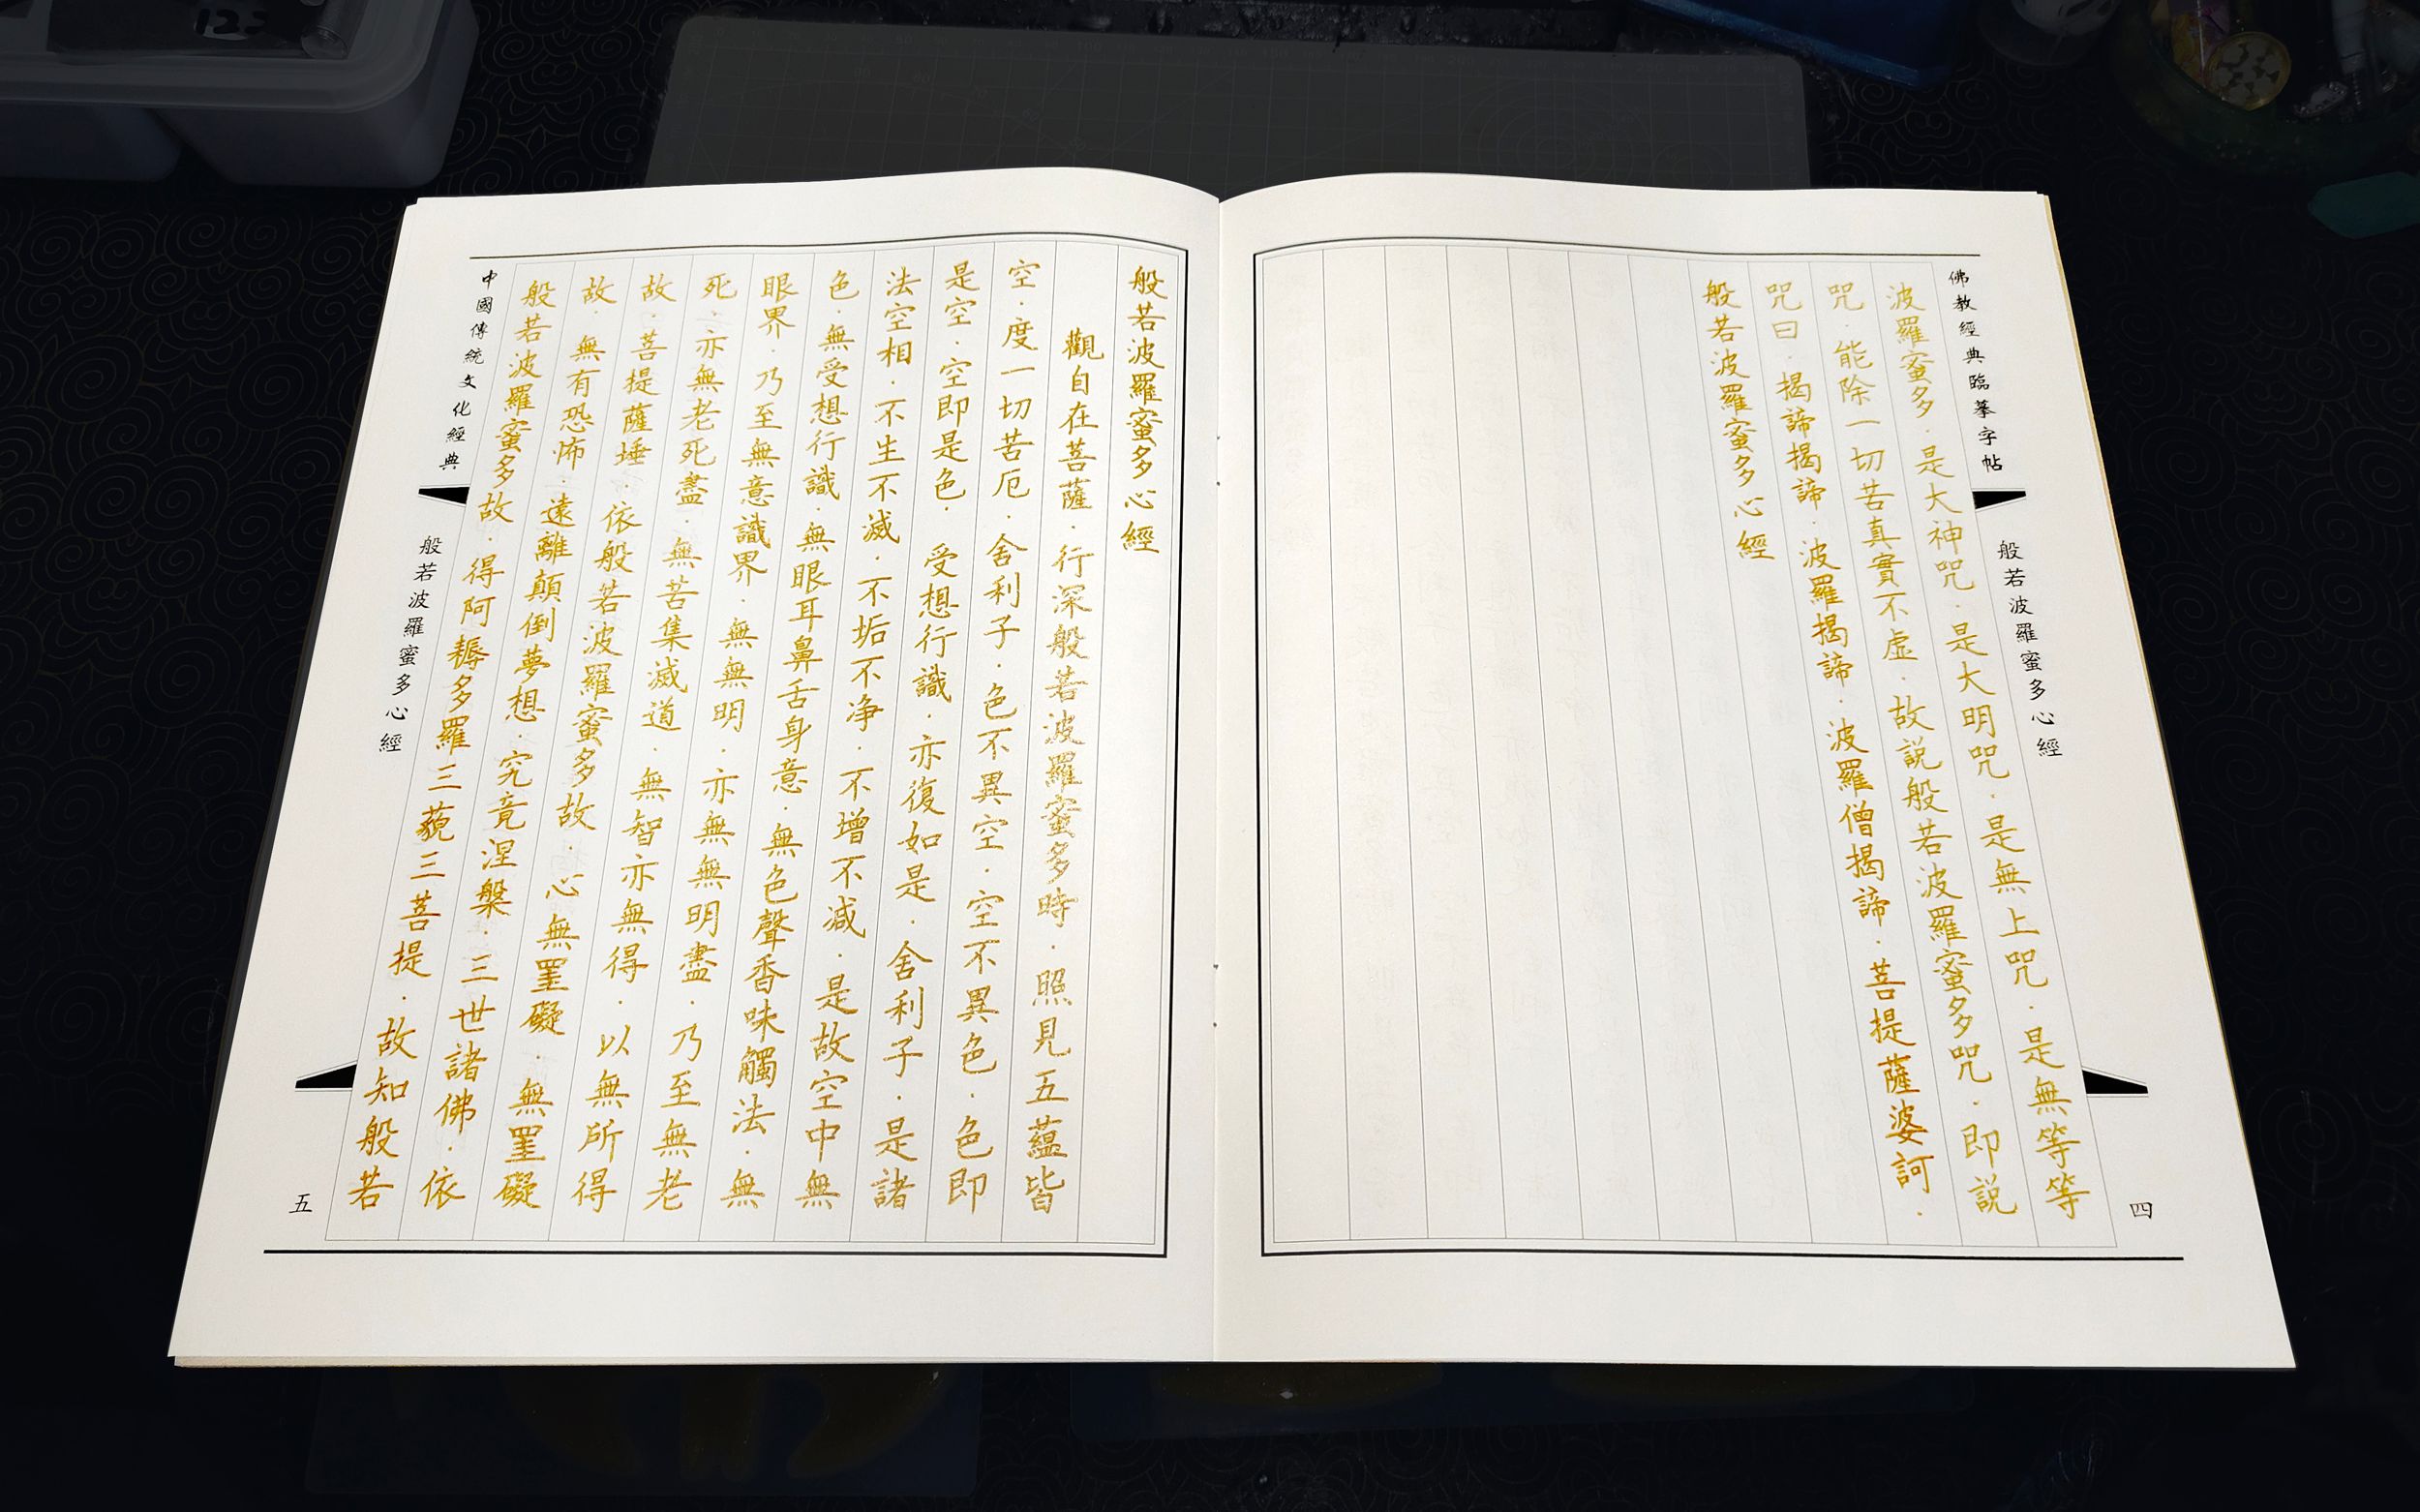 佛教經典臨摹字帖
般若波羅蜜多心經
四
波羅蜜多·是大神咒·是大明咒·是無上咒·是無等等
咒·能除一切苦真實不虛·故説般若波羅蜜多咒·即説
咒曰·揭諦揭諦·波羅揭諦·波羅僧揭諦·菩提薩婆訶·
般若波羅蜜多心經
般若波羅蜜多心經
觀自在菩薩·行深般若波羅蜜多時·照見五蘊皆
空·度一切苦厄·舍利子·色不異空·空不異色·色即
是空·空即是色·受想行識·亦復如是·舍利子·是諸
法空相·不生不滅·不垢不净·不增不减·是故空中無
色·無受想行識·無眼耳鼻舌身意·無色聲香味觸法·無
眼界·乃至無意識界·無無明·亦無無明盡·乃至無老
死·亦無老死盡·無苦集滅道·無智亦無得·以無所得
故·菩提薩埵·依般若波羅蜜多故·心無罣礙·無罣礙
故·無有恐怖·遠離顛倒夢想·究竟涅槃·三世諸佛·依
般若波羅蜜多故·得阿耨多羅三藐三菩提·故知般若
中國傳統文化經典
般若波羅蜜多心經
五
123